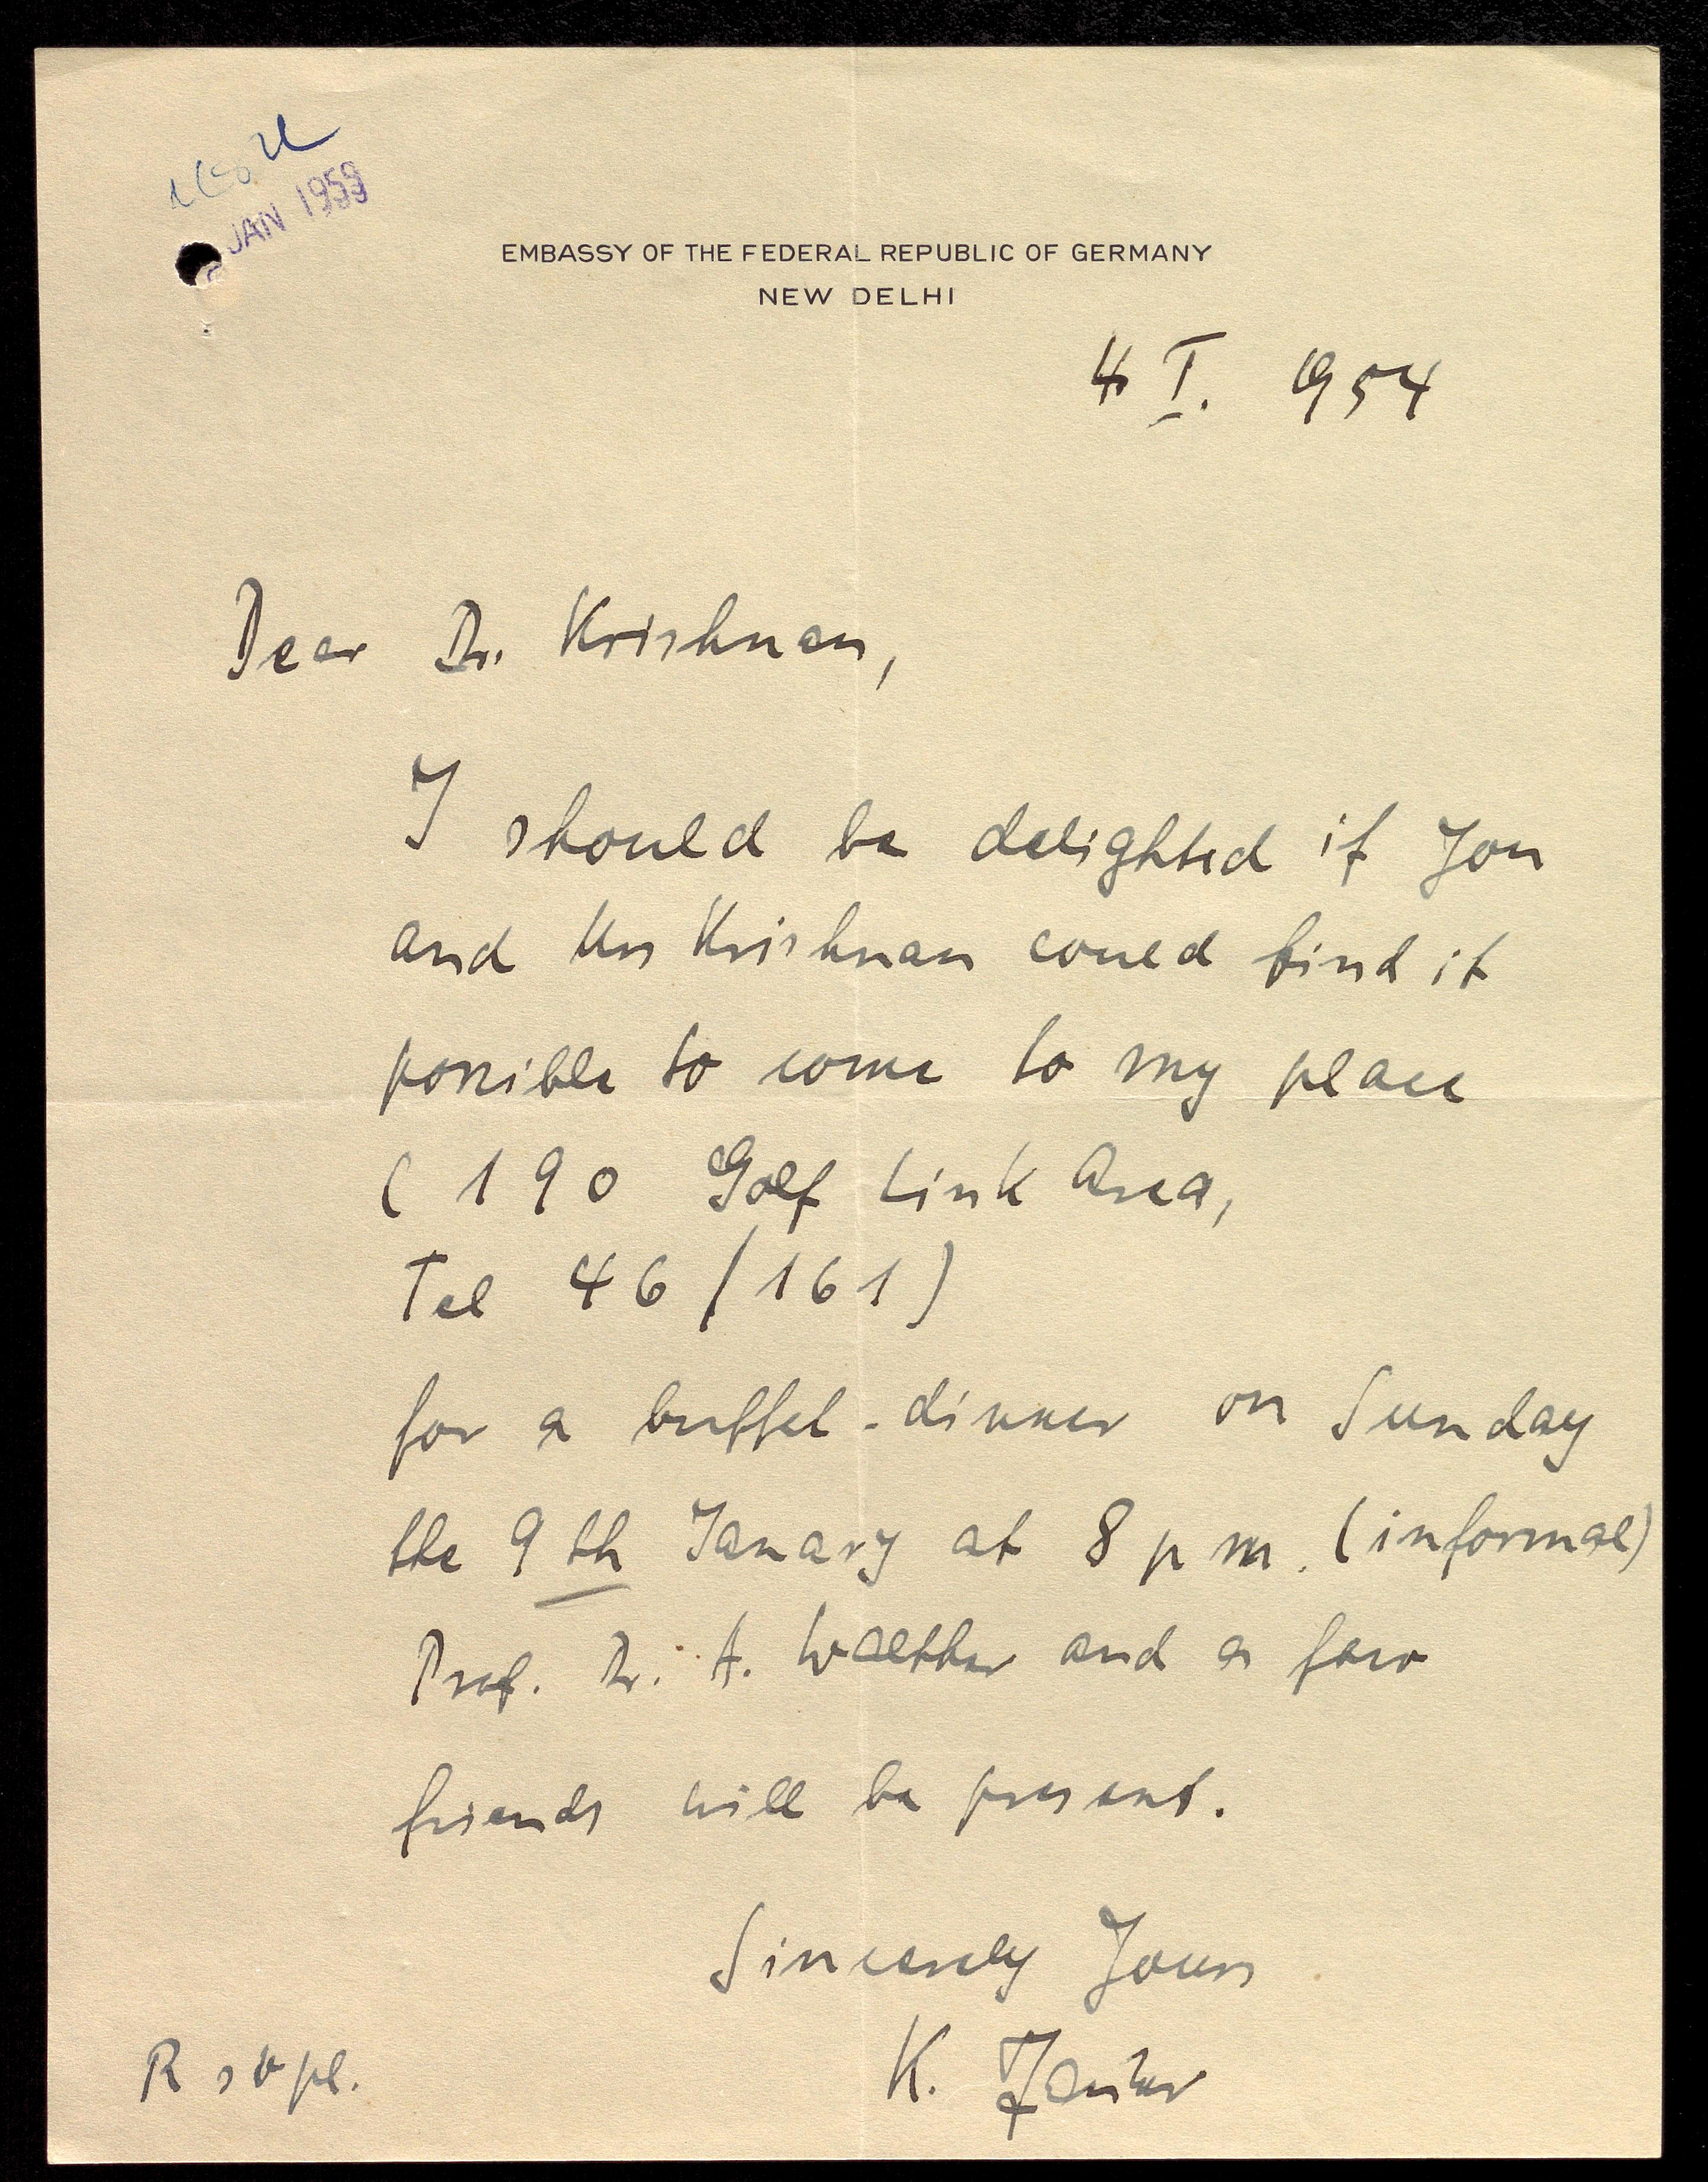 JAN 1959
EMBASSY OF THE FEDERAL REPUBLIC OF GERMANY
NEW DELHI
4 I. 1954
Dear Dr. Krishnan,
I should be delighted if You
and Mrs Krishnan could find it
possible to come to my place
(190 Golf Link Area,
Tel 46/161)
for a buffet-dinner on Sunday
the 9th Janary at 8 p m. (informal)
Prof. Dr. A. Walther and a few
friends will be present.
Sincerely Yours
K.
R s v pl.